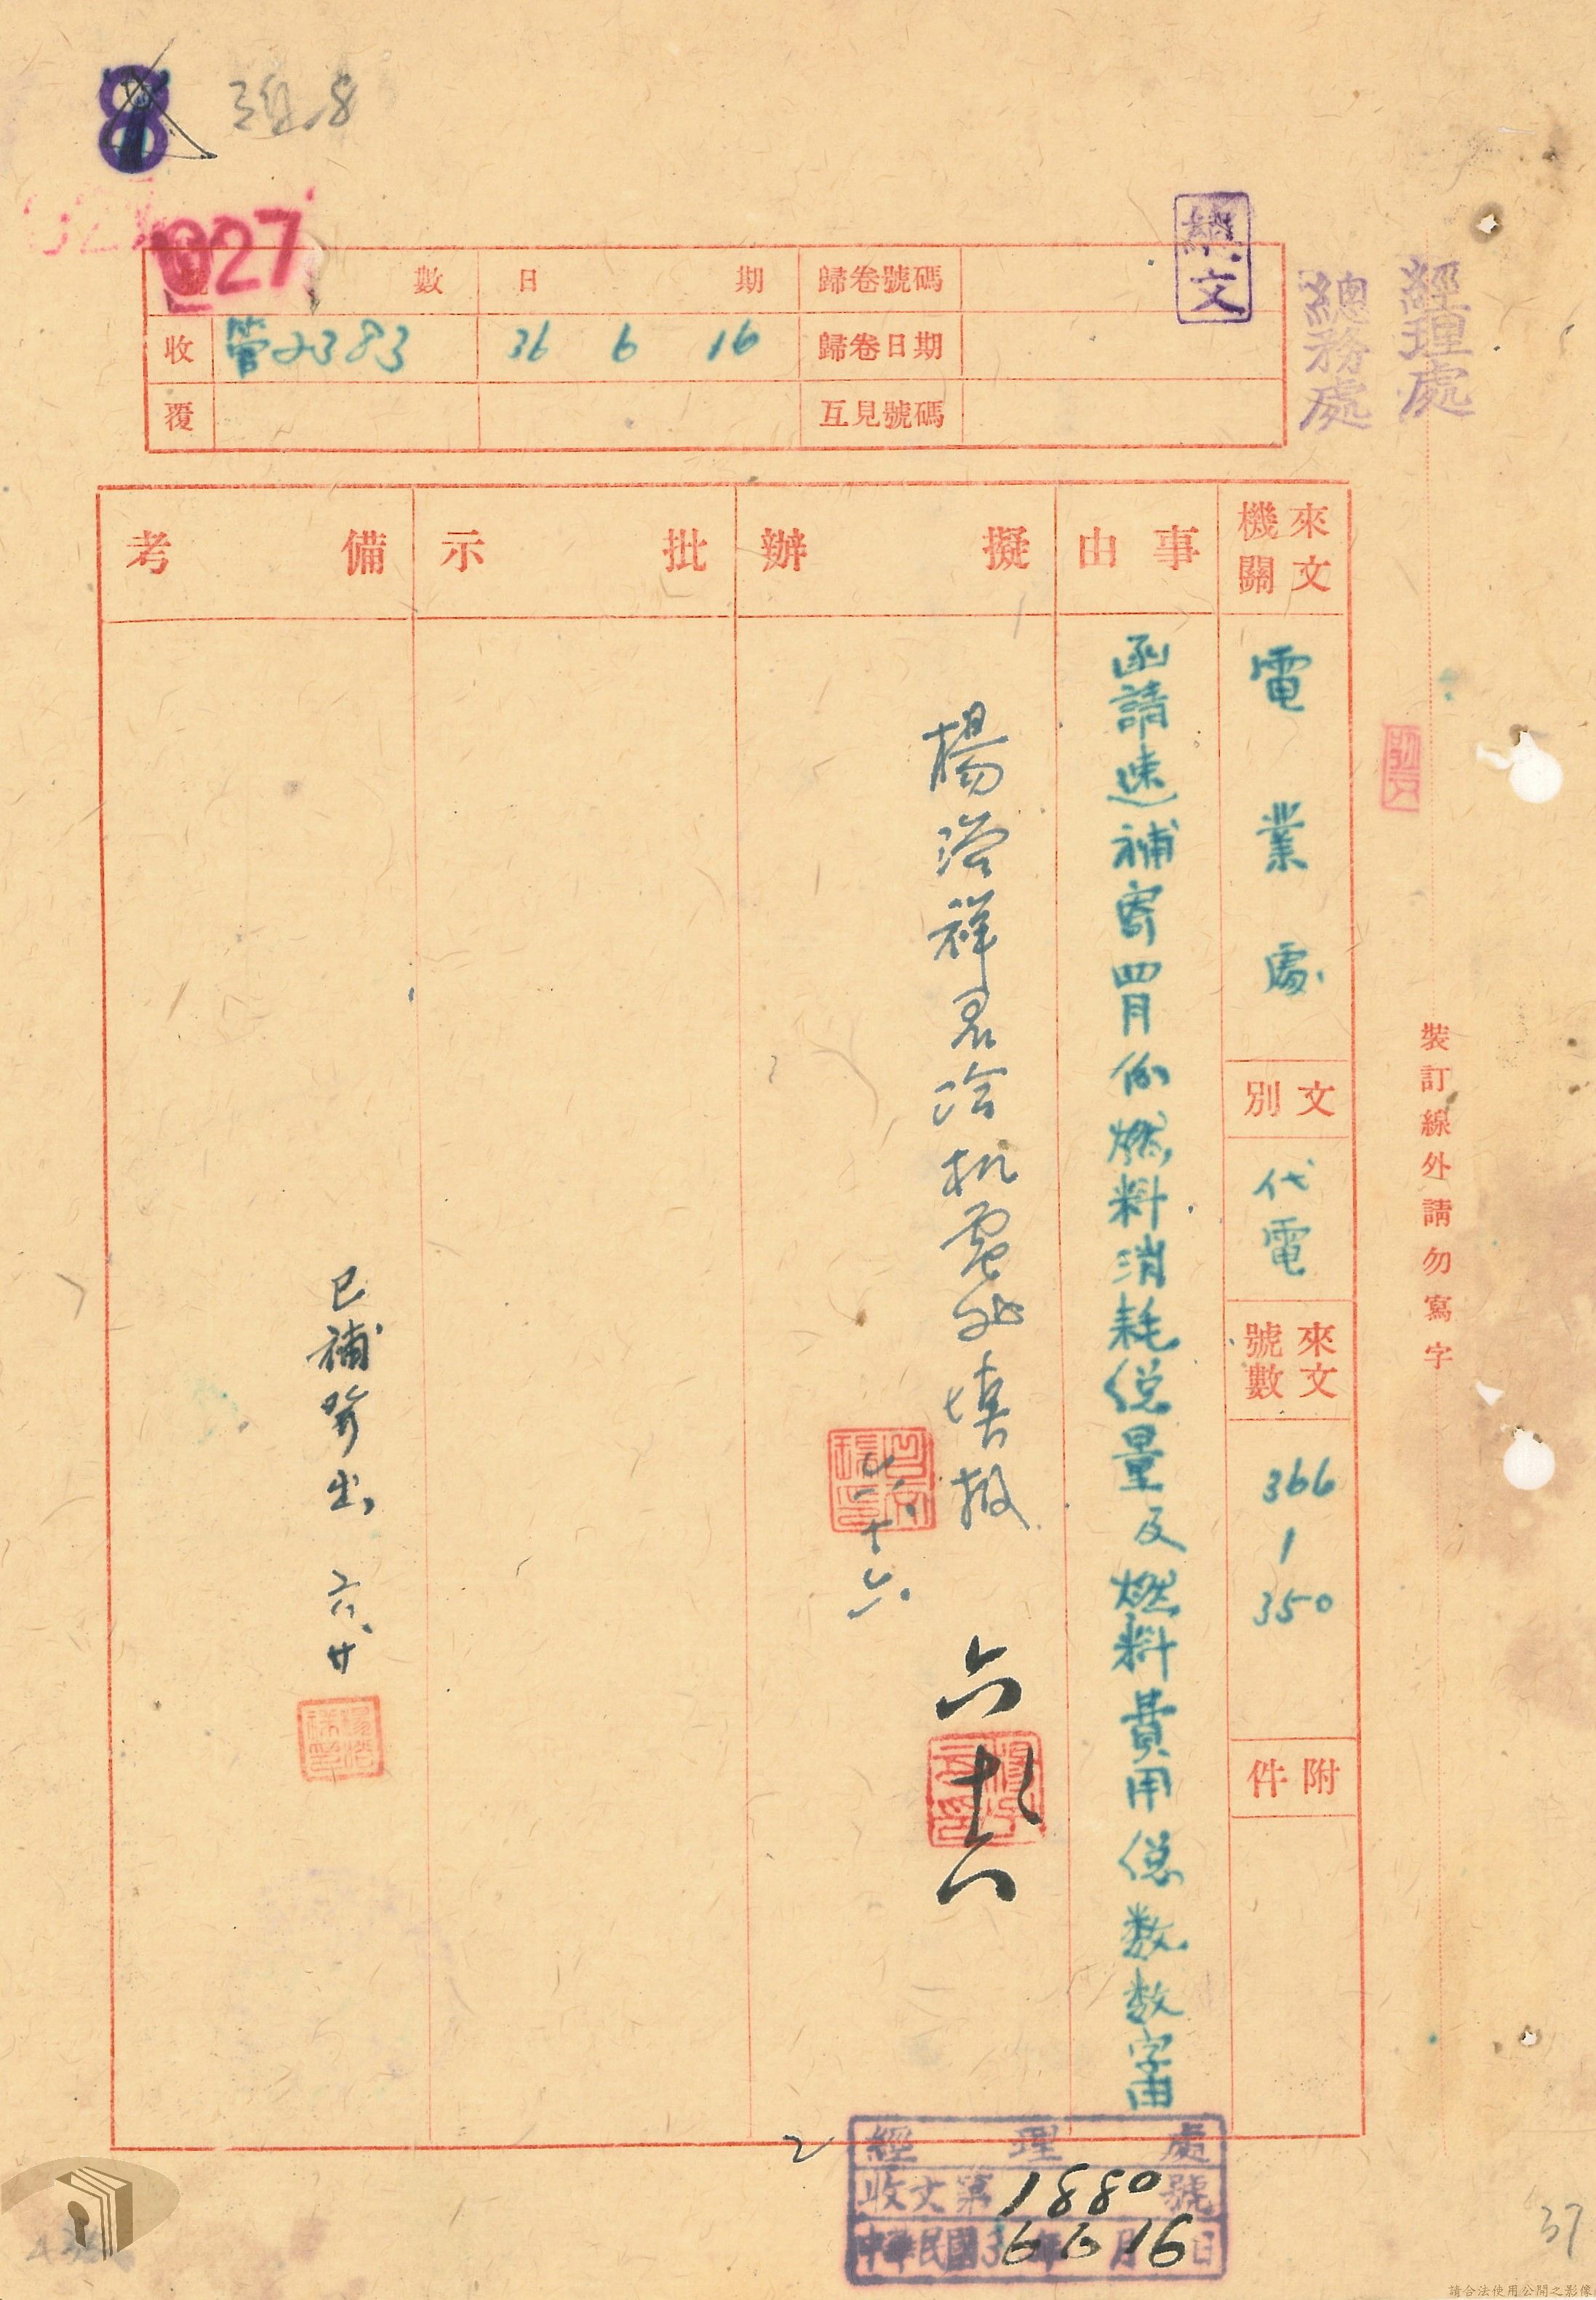 8
027
總文
經理處
總務處
號數 日期 歸卷號碼
收 管2383 36 6 16 歸卷日期
覆 互見號碼
來文機關
電業處
文別
代電
來文號數
366
1
350
附件
事由
函請速補寄四月份燃料消耗總量及燃料費用總數數字由
擬辦
楊浴祥君洽机電處填報
六十六
六
十八
批示
備考
已補寄出 六、廿
裝訂線外請勿寫字
經理處
收文第1880號
中華民國36年6月16日
37
請合法使用公開之影像